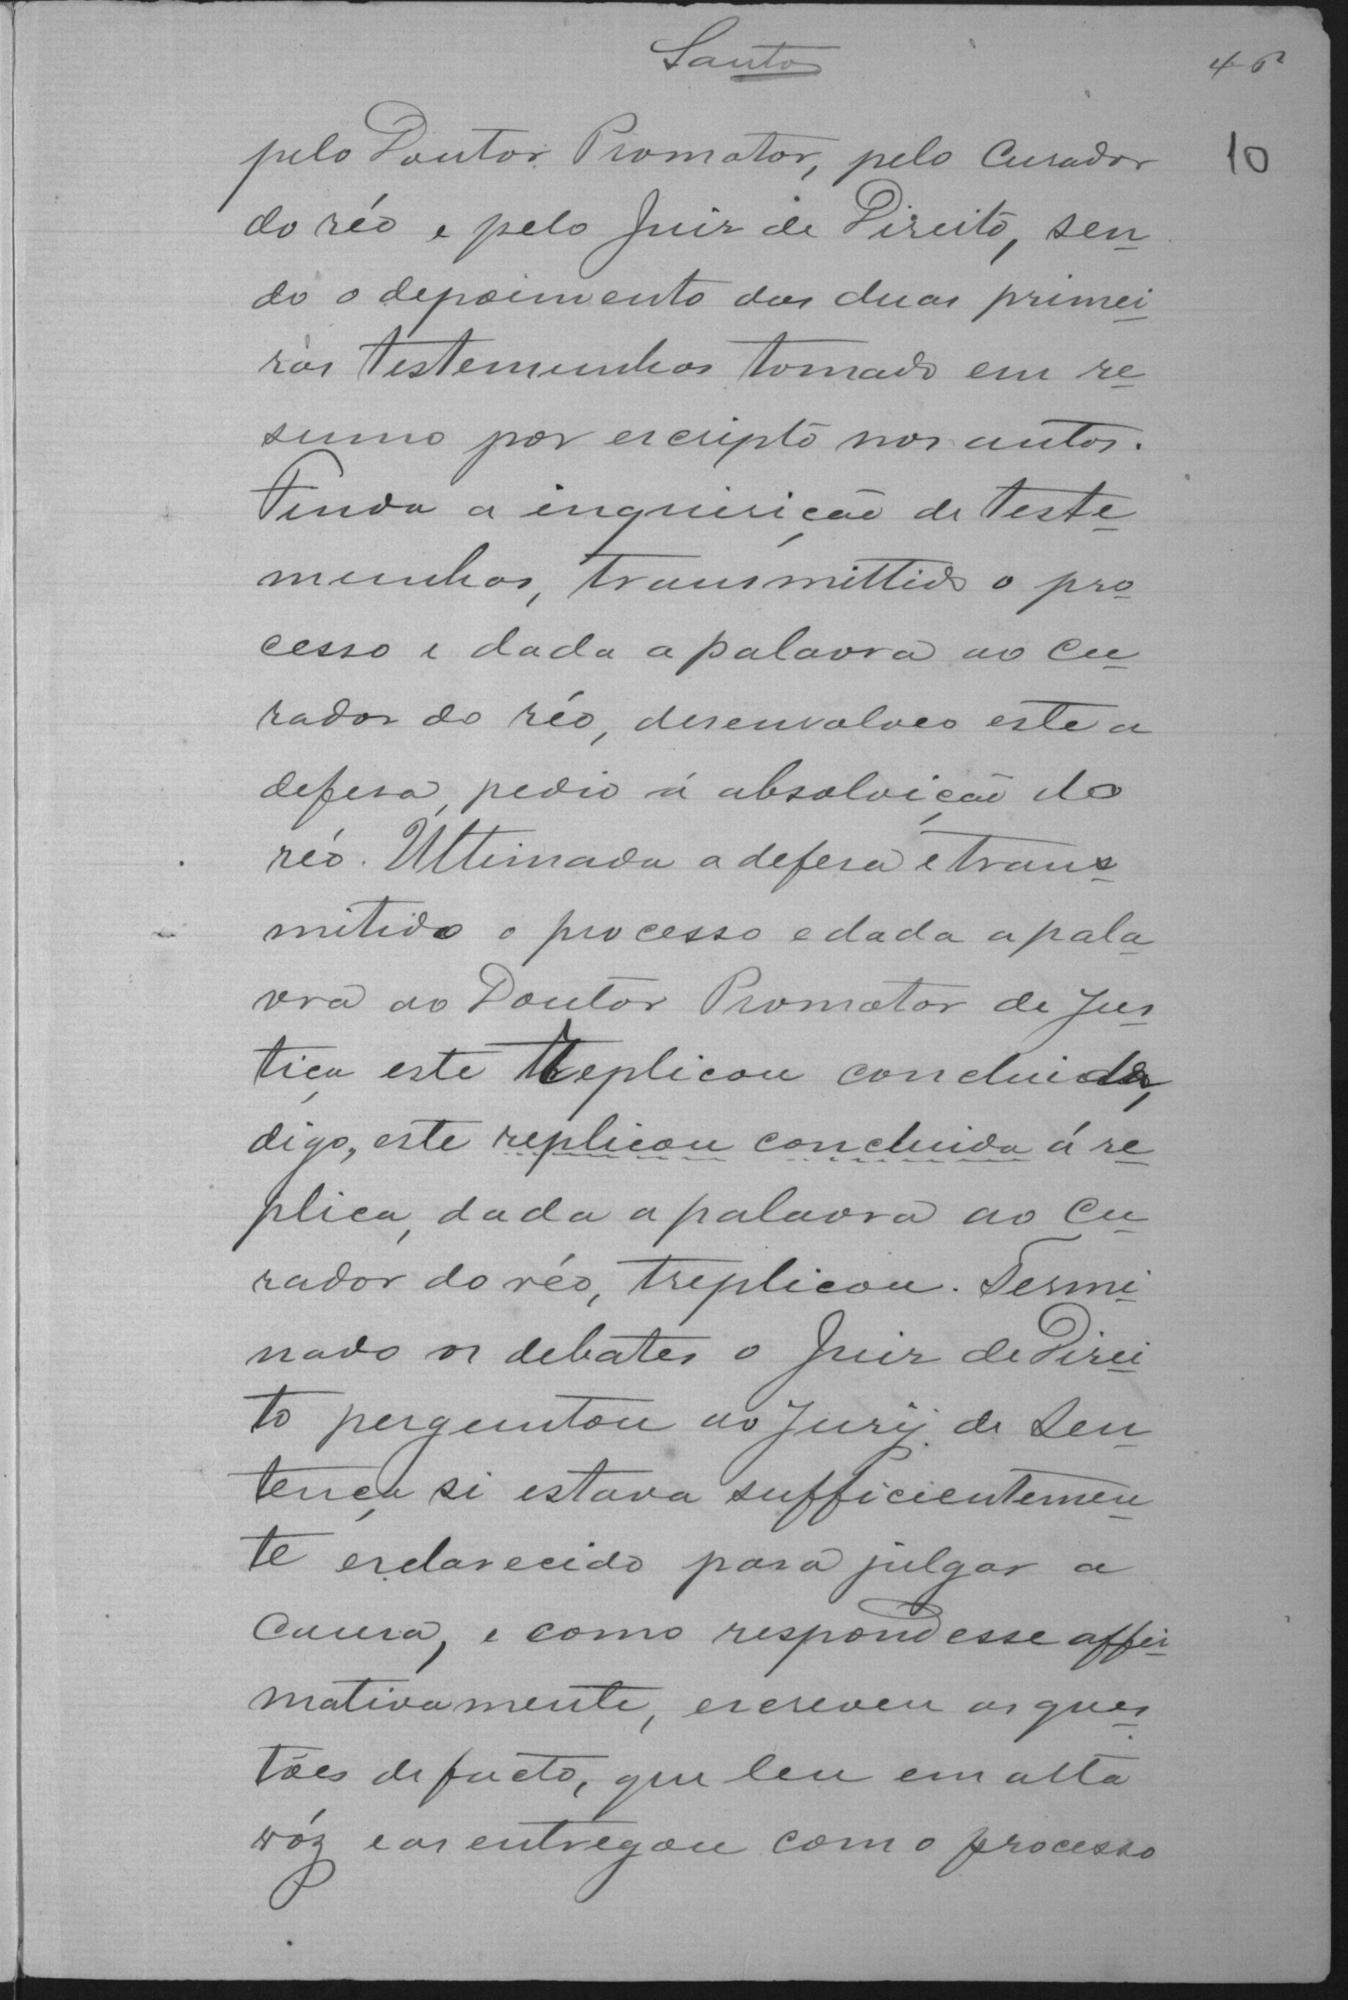 Santos
46
10
pelo Doutor Promotor, pelo Curador
do réo e pelo Juiz de Direito, sen
do o depoimento das duas primei
ras testemunhas tomado em re
sumo por escripto nos autos.
Finda a inquirição de teste
munhas, transmittido o pro
cesso e dada a palavra ao Cu
rador do réo, desenvolveo este a
defesa, pedio á absolvição do
réo. Ultimada a defesa e trans
mitido o processo e dada a pala
vra ao Doutor Promotor de Jus
tiça este treplicou concluida,
digo, este replicou concluida á re
plica, dada a palavra ao Cu
rador do réo, treplicou. Termi
nado os debates o Juiz de Direi
to perguntou ao Jury de Sen
tença si estava sufficientemen
te esclarecido para julgar a
causa, e como respondesse affir
mativamente, escreveu as ques
tões de facto, que leu em alta
vóz e as entregou com o processo